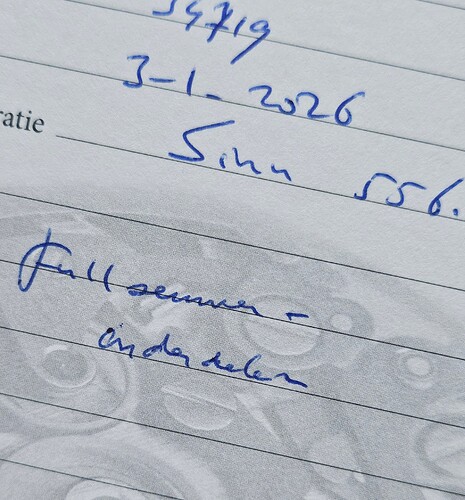 54719
3-1-2026
ratie Sinn 556.
full service -
onderdelen